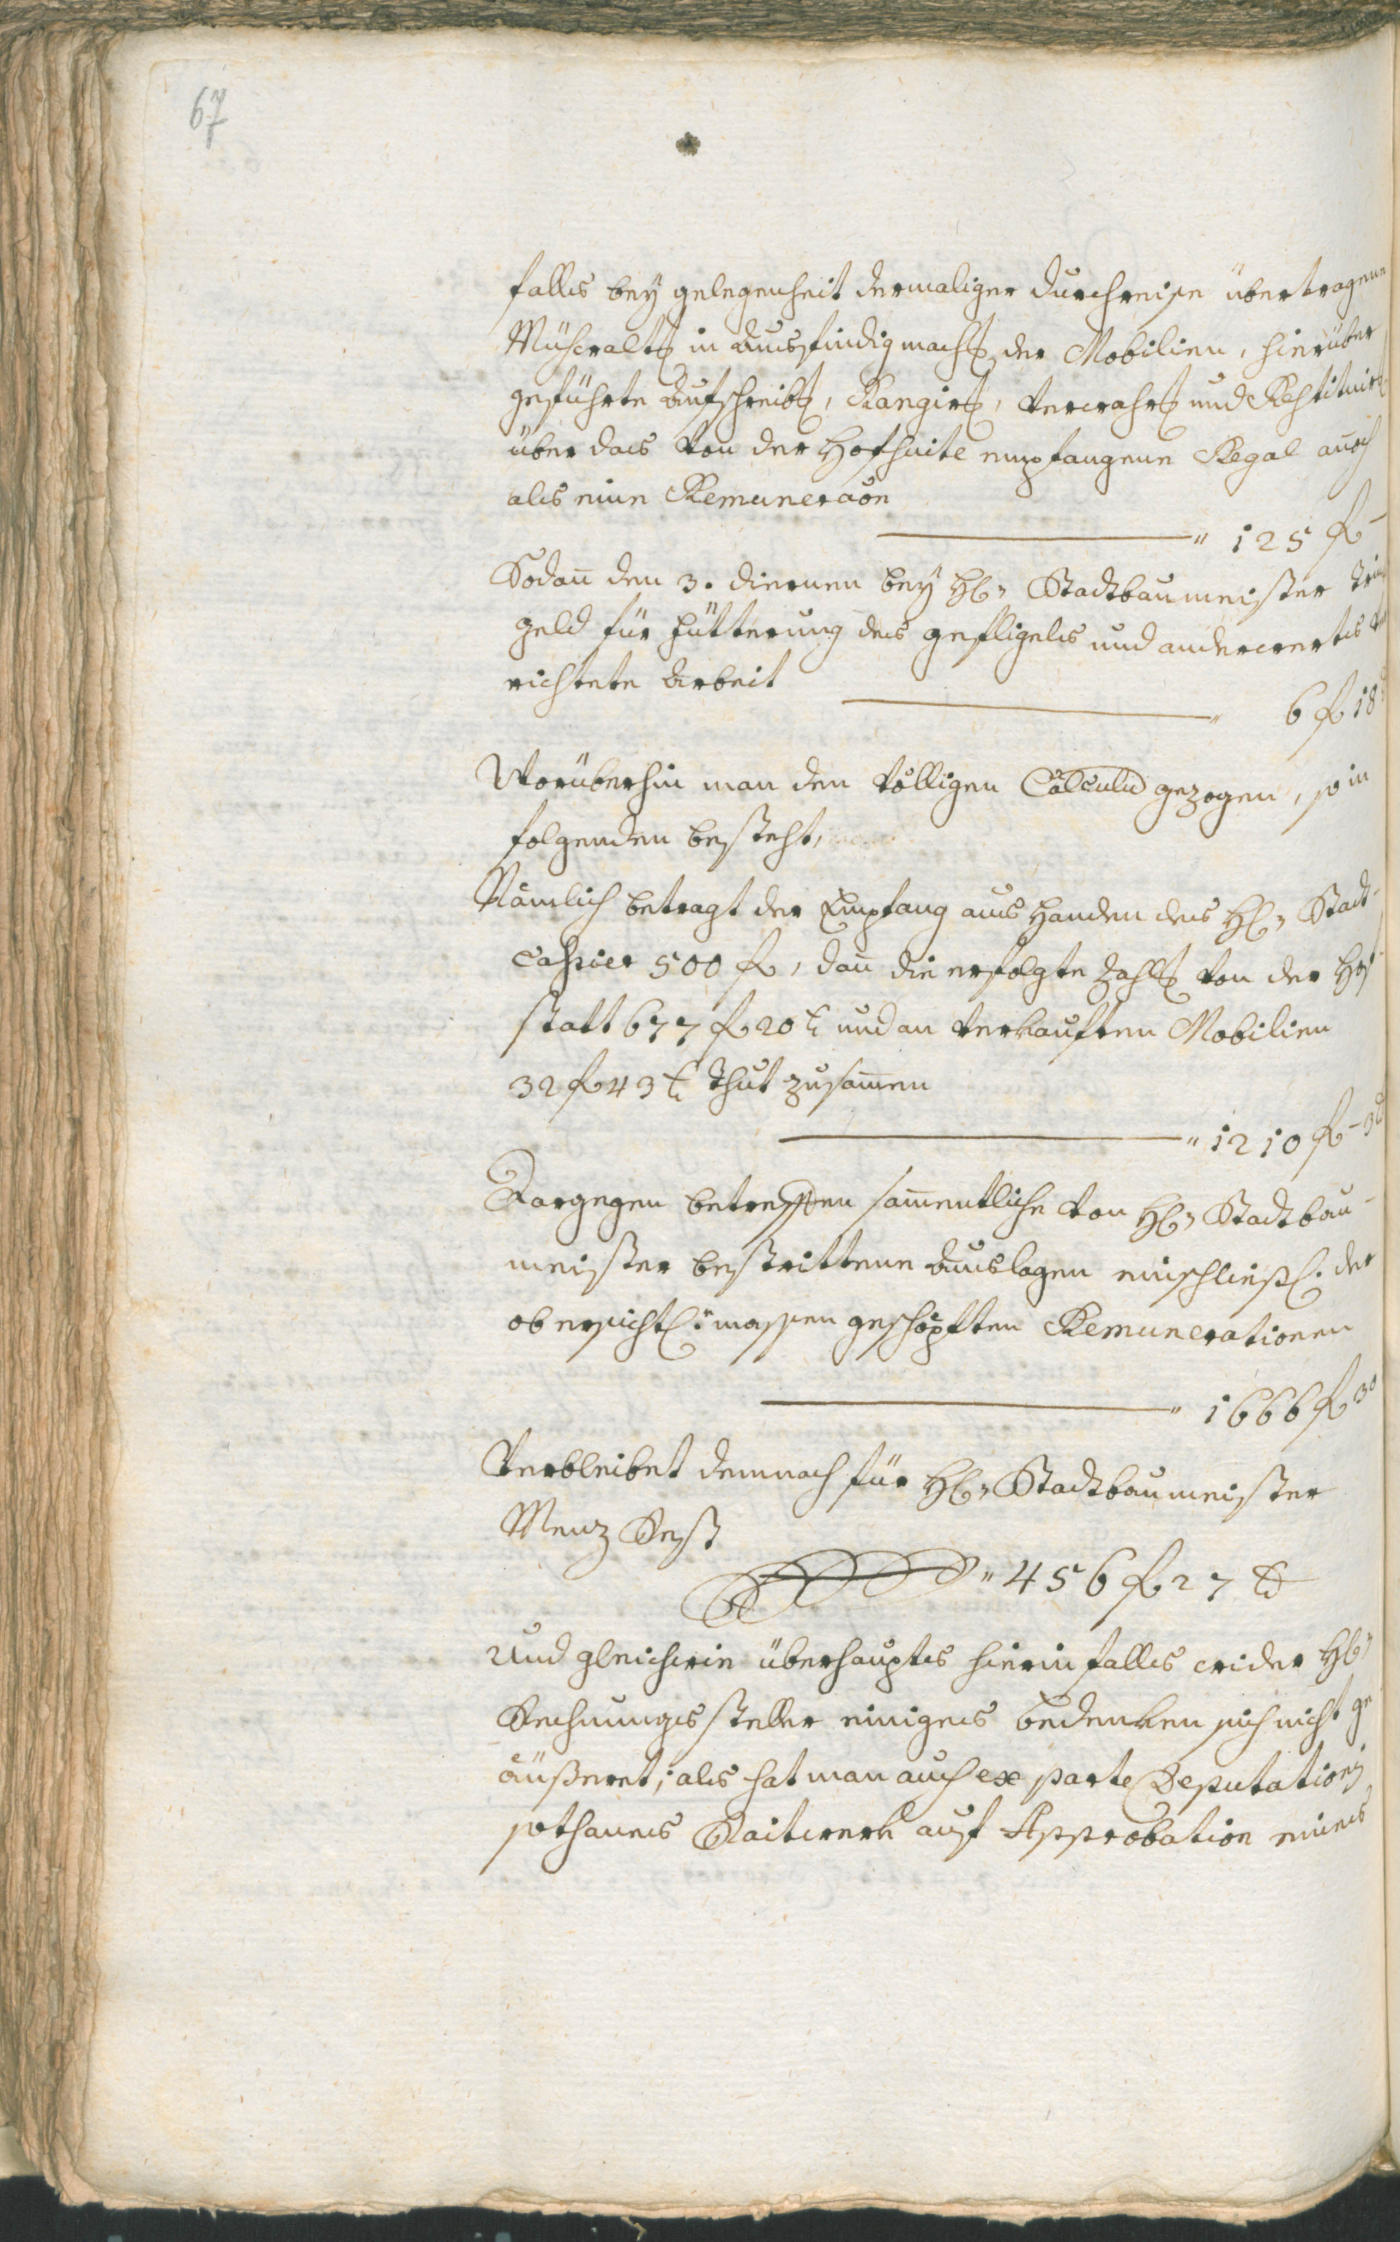 67
falls bey gelegenheit dermaliger durchreise übertragene
Mühewalt. in ausfindigmach. der Mobilien, hierüber
geführte Aufschreib., Rangir., verwahr. und Restituir.
über das von der Hofsuite empfangene Regal annoch
als eine Remuneraon
" 125 f -
Sodan̄ den 3. diernen bey H: Stadtbaumeister
geld für fütterung des gefligels und anderwerts
richtete Arbeit
" 6 f 18
Worüberhin man den völligen Calculū gezogen, so in
folgenden besteht,
Nämlich betragt der Empfang aus handen des H: Stadt-
Cassier 500 f, dan̄ die erfolgte Zahl. von der Hof-
statt 677 f 20 x und an verkauften Mobilien
32 f 43 x thut zusam̄en
" 1210 f - 3
Dargegen betreffen sam̄entliche von H: Stadtbau-
meister bestrittene Auslagen einschließl. der
obersichtl: massen geschöpften Remunerationen
" 1666 f 30
Verbleibet demnach für H: Stadtbaumeister
Menz Rest
" 456 f 27 x
Und gleichwie überhaupts hierinfalls wider H:
Rechnungssteller einiges bedenken sich nicht ge
äußeret; als hat man auch ex parte Deputationis
sothanes Raitwerk auf Approbation eines